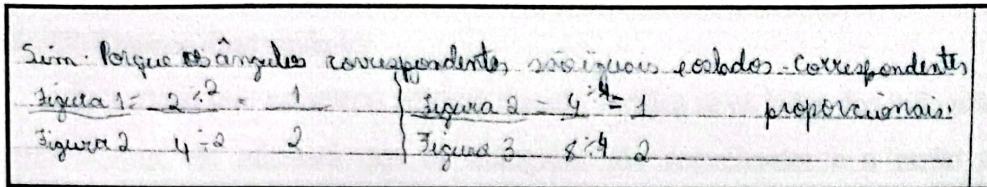 Sim. Porque os ângulos correspondentes são iguais e os lados correspondentes proporcionais.
Figura 1 = 2 ÷2 = 1 Figura 2 = 4 ÷4 = 1
Figura 2 4 ÷2 2 Figura 3 8 ÷4 2